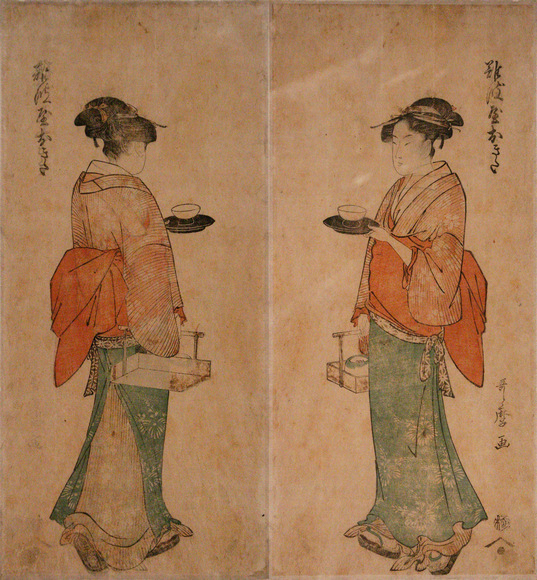 難波屋おきた
難波屋おきた
哥麿画
極